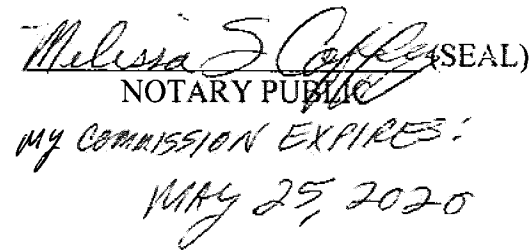 Melissa S (SEAL)
NOTARY PUBLIC
MY COMMISSION EXPIRES:
MAY 25, 2020